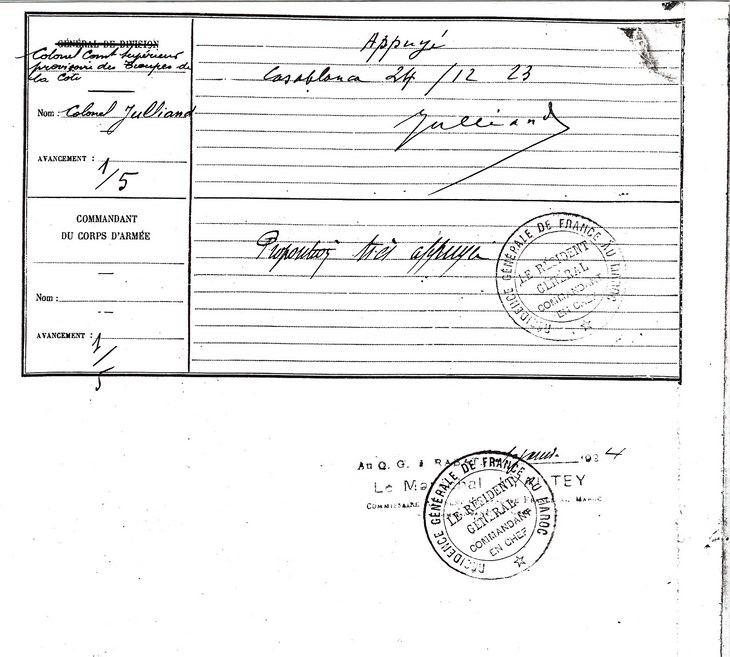 GÉNÉRAL DE DIVISION
Colonel Comt Supérieur
provisoire des Troupes de
la Cote
Nom : Colonel Julliand
AVANCEMENT :
1/5
Appuyé
Casablanca 24/12 23
Julliand
COMMANDANT
DU CORPS D'ARMÉE
Nom :
AVANCEMENT :
1/5
Proposition très appuyée
RÉSIDENCE GÉNÉRALE DE FRANCE AU MAROC
LE RÉSIDENT
GÉNÉRAL
COMMANDANT
EN CHEF
Au Q. G.
Le
COMMISSAIRE
MAROC
RÉSIDENCE GÉNÉRALE DE FRANCE AU MAROC
LE RÉSIDENT
GÉNÉRAL
COMMANDANT
EN CHEF